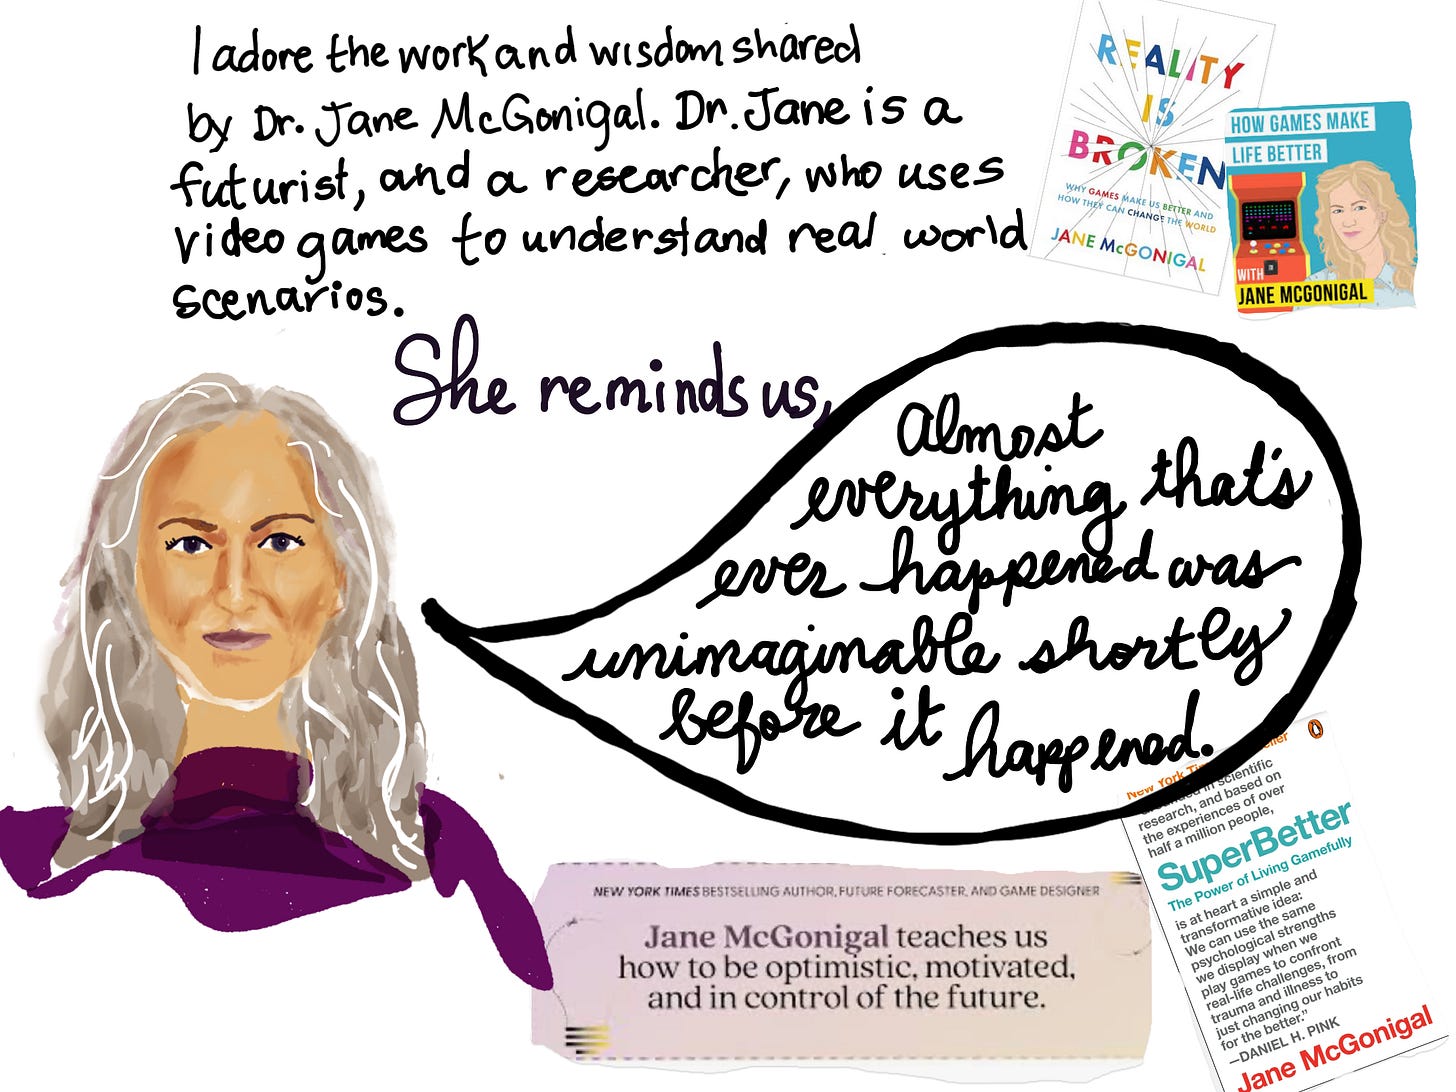 I adore the work and wisdom shared
by Dr. Jane McGonigal. Dr. Jane is a
futurist, and a researcher, who uses
video games to understand real world
scenarios.
REALITY
IS
BROKEN
WHY GAMES MAKE US BETTER AND
HOW THEY CAN CHANGE THE WORLD
JANE McGONIGAL
HOW GAMES MAKE
LIFE BETTER
WITH
JANE MCGONIGAL
She reminds us,
Almost
everything that's
ever happened was
unimaginable shortly
before it
happened.
NEW YORK TIMES BESTSELLING AUTHOR, FUTURE FORECASTER, AND GAME DESIGNER
Jane McGonigal teaches us
how to be optimistic, motivated,
and in control of the future.
New York
in scientific
research, and based on
the experiences of over
half a million people,
SuperBetter
The Power of Living Gamefully
is at heart a simple and
transformative idea:
We can use the same
psychological strengths
we display when we
play games to confront
real-life challenges, from
trauma and illness to
just changing our habits
for the better."
—DANIEL H. PINK
Jane McGonigal